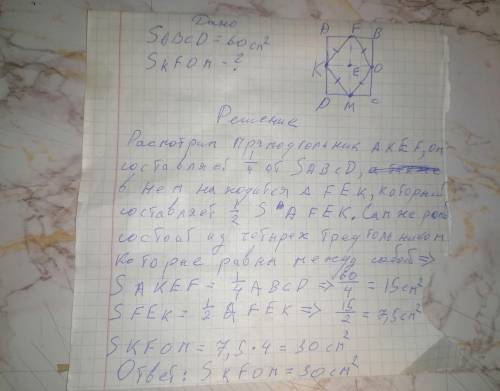 Дано
SABCD = 60см²
SKFOM - ?
A F B
K E O
D M C
Решение
Расмотрим прямоугольник AKEF, он
составляет 1/4 от SABCD,
в нем находится △ FEK, который
составляет 1/2 S AFEK. Сам же ромб
состоит из четырех треугольников
которые равны между собой =>
SAKEF = 1/4 ABCD => 60/4 = 15см²
SFEK = 1/2 AFEK => 15/2 = 7,5см²
SKFOM = 7,5 · 4 = 30см²
Ответ: SKFOM = 30см²